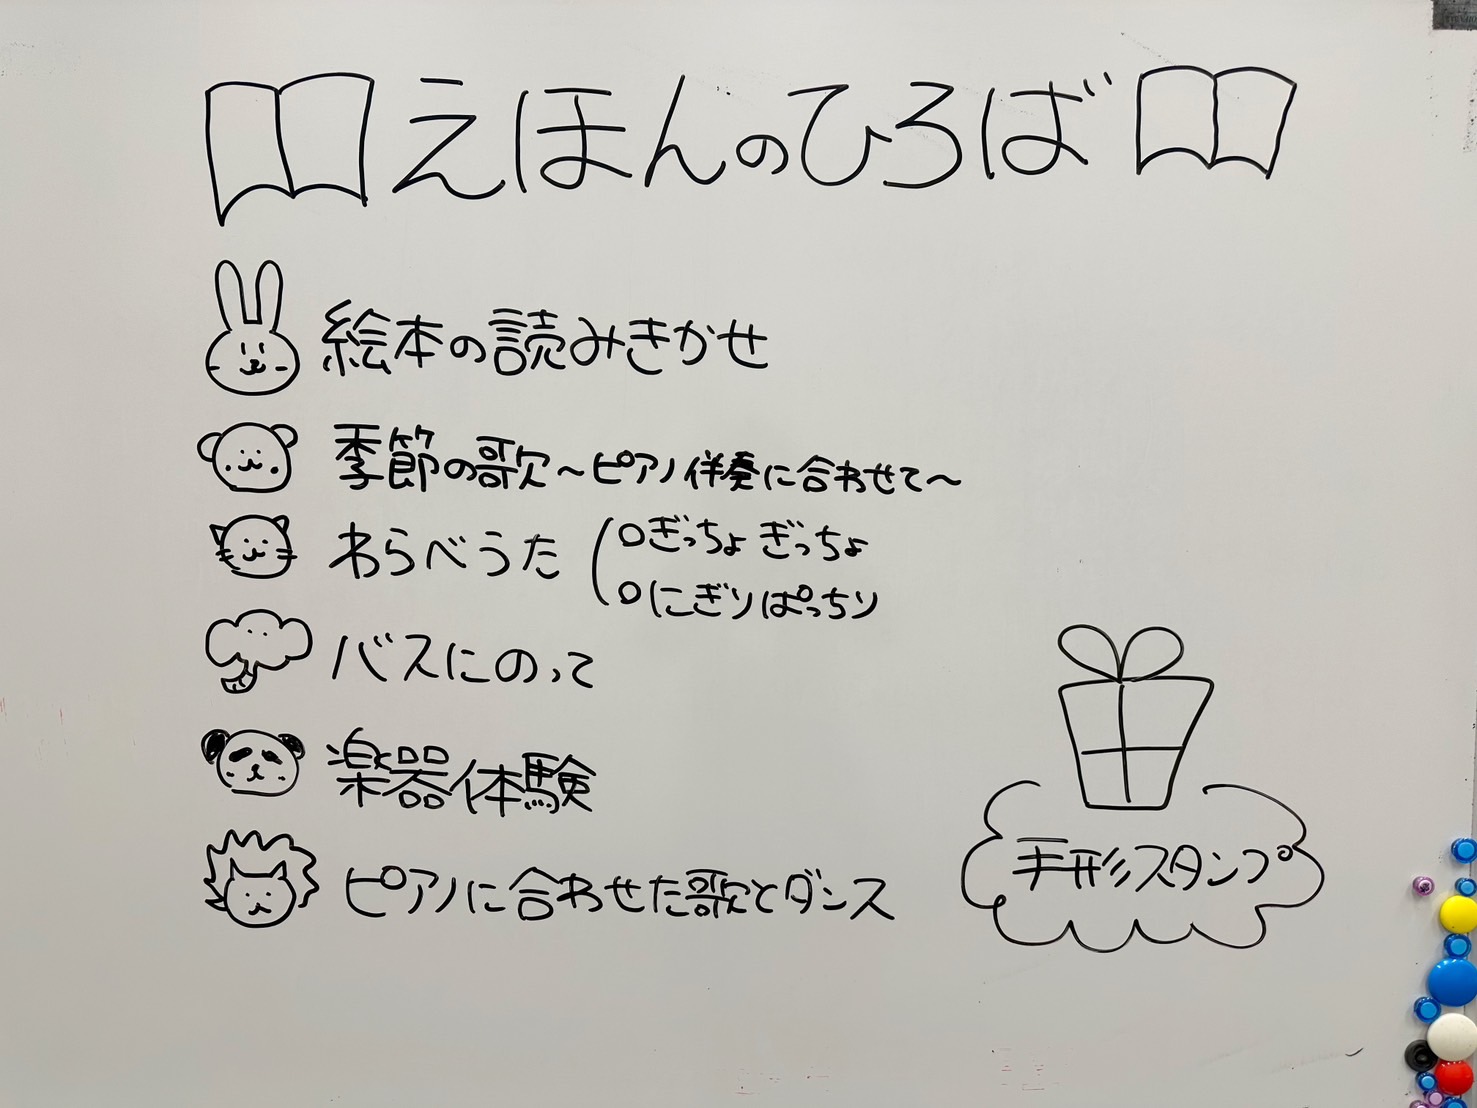 えほんのひろば
絵本の読みきかせ
季節の歌～ピアノ伴奏に合わせて～
わらべうた
○ぎっちょ ぎっちょ
○にぎりぱっちり
バスにのって
楽器体験
ピアノに合わせた歌とダンス
手形スタンプ